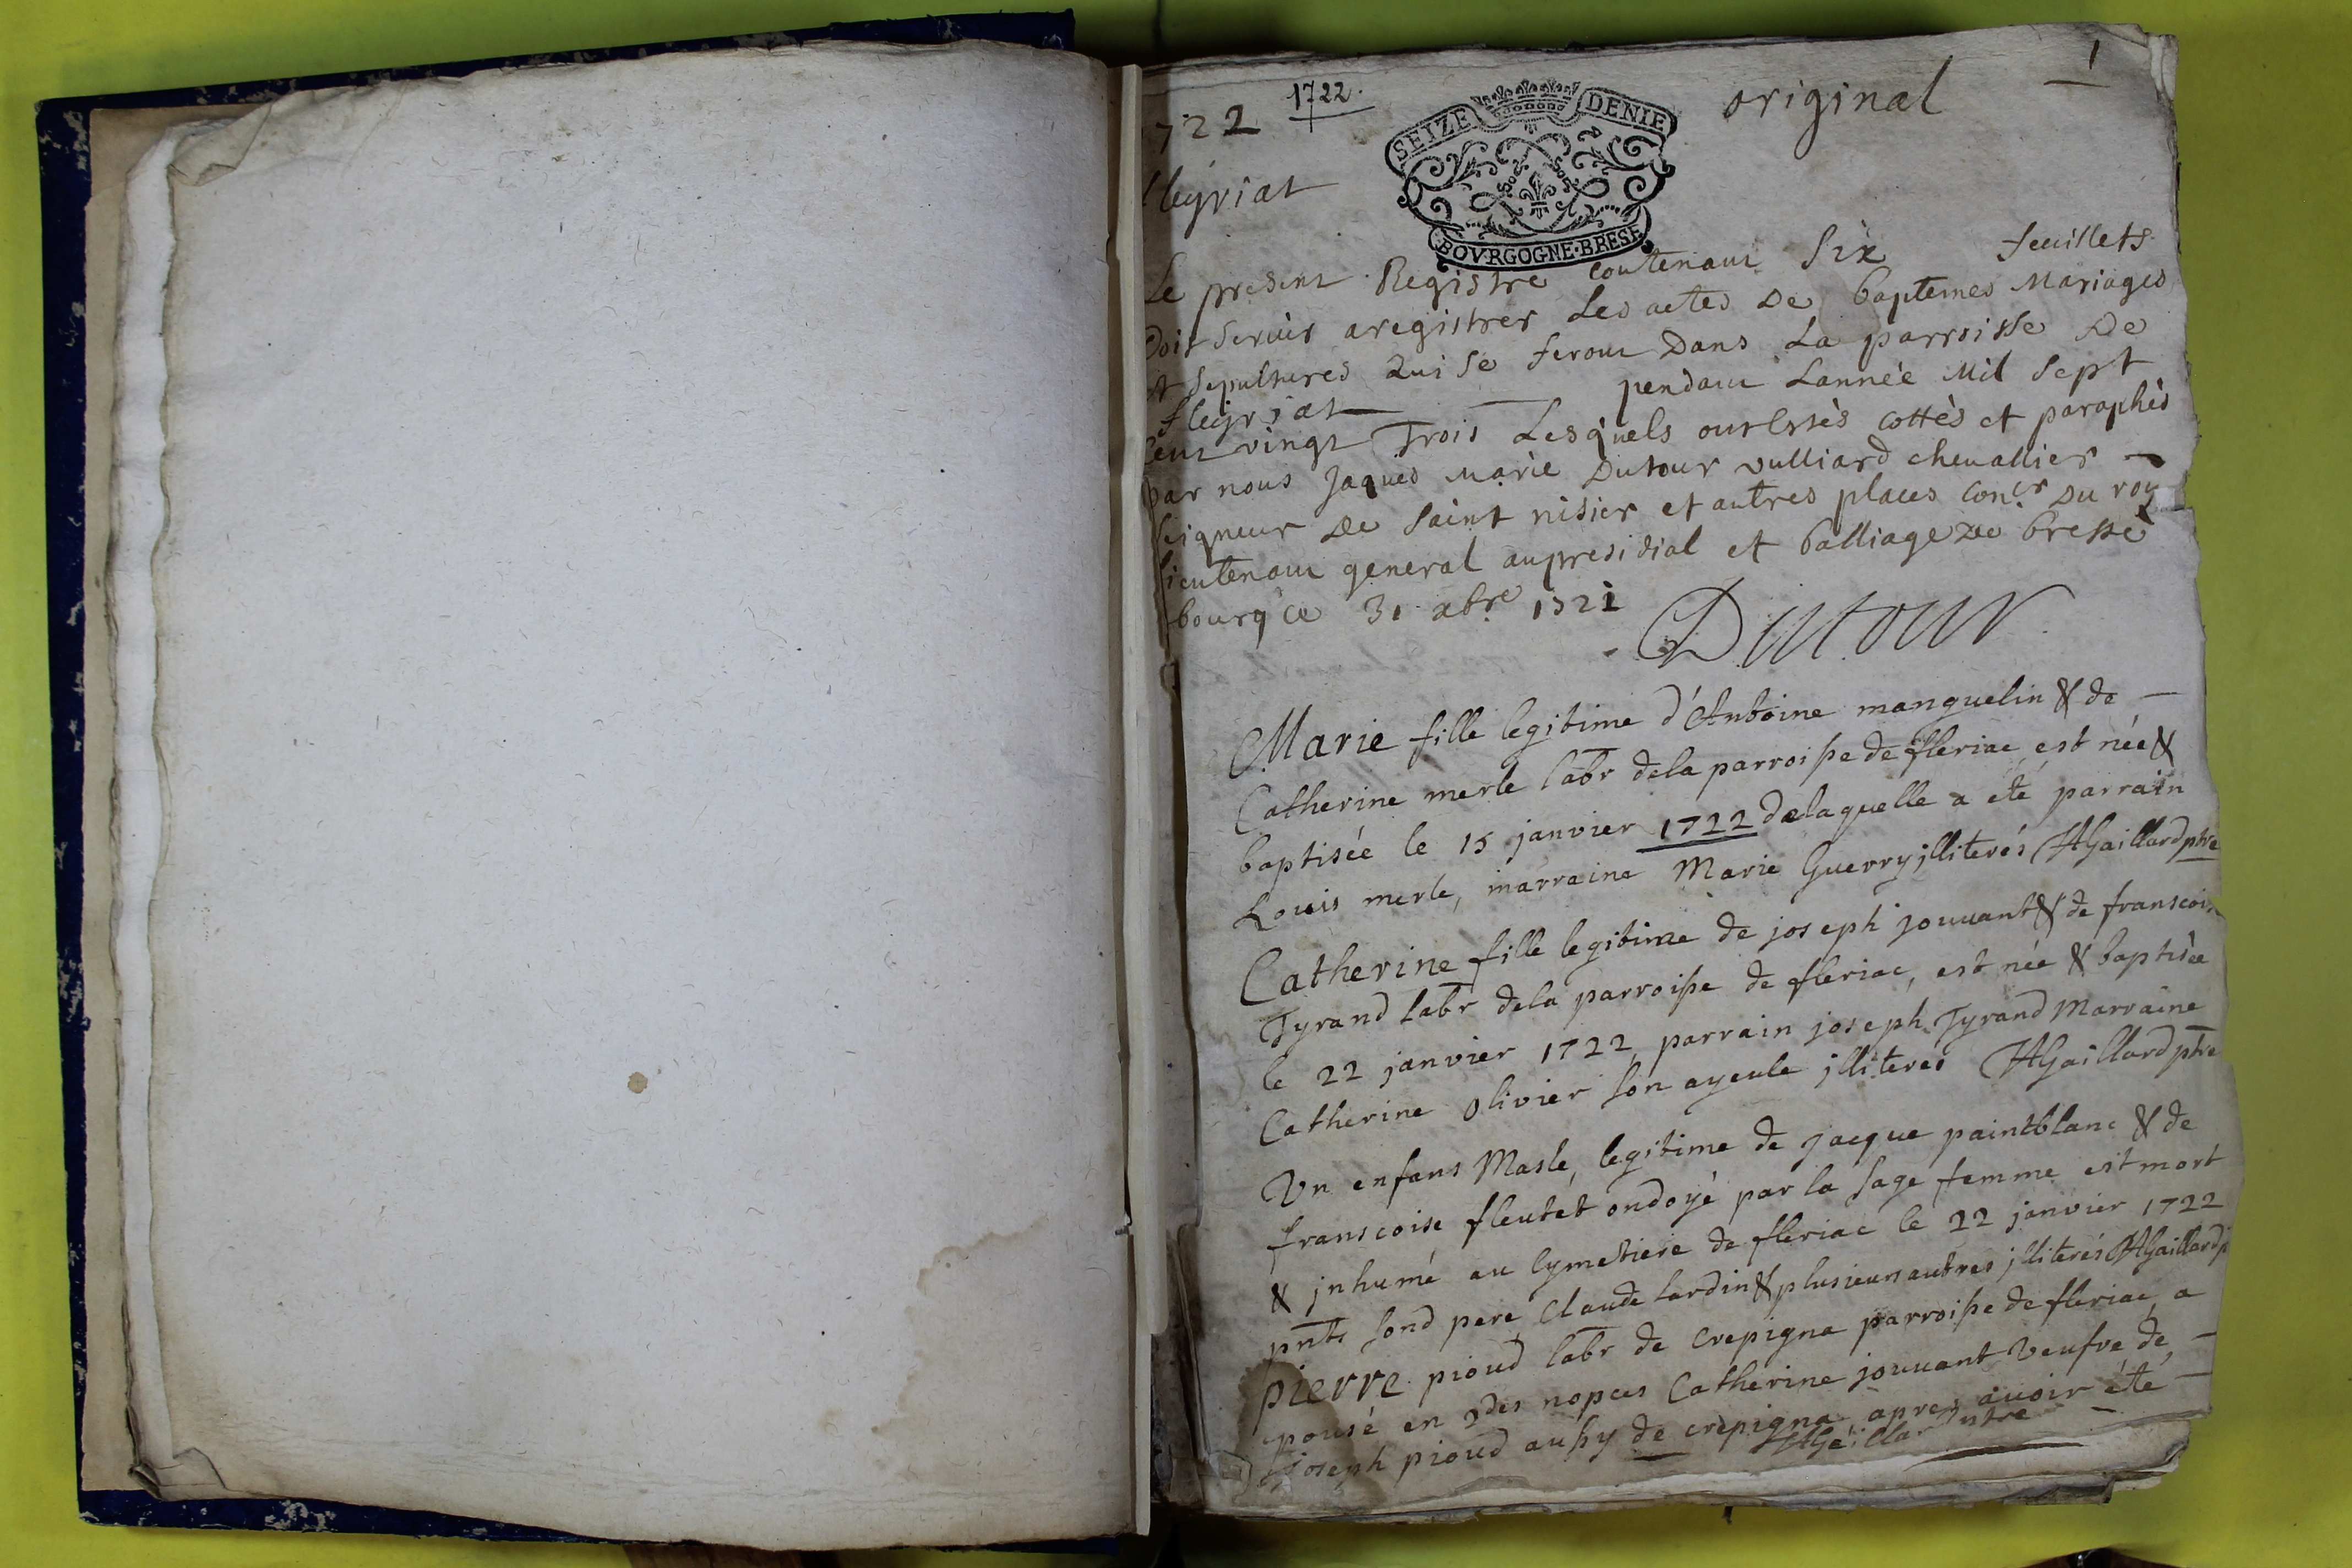 1
1722.
722
original
SEIZE DENIE
BOVRGOGNE·BRESE
fleyriat
Le present Registre contenant Six feuillets
Doit Servir aregistrer Les actes De baptemes Mariages
et sepultures Qui se feront Dans La parroisse De
fleyriat pendant Lannée Mil Sept
Cent vingt Trois Lesquels ont Estés cottés et paraphés
par nous Jaques Marie Dutour vulliard chevallier
Seigneur De Saint nisier et autres places Con.er Du roy
lieutenant general aupresidial et balliage De bresse
bourg ce 31 xbre 1721
Dutour
Marie fille legitime d'Antoine manguelin & de
Catherine merle labr dela parroisse de fleriac est née &
baptisée le 15 janvier 1722 delaquelle a été parrain
Louis merle, marraine Marie Guerry jlliterés AGaillard ptre
Catherine fille legitime de joseph jouuant & de franscoise
Tyrand labr dela parroisse de fleriac, est née & baptisée
le 22 janvier 1722, parrain joseph Tyrand Marraine
Catherine Olivier son ayeule jlliteres AGaillard ptre
Vn enfans Masle, legitime de jacque paintblanc & de
franscoise fleutet ondoyé par la sage femme est mort
& jnhumé au Cymetiere de fleriac le 22 janvier 1722
pnts sond pere Claude Lardin & plusieurs autres jlliterés AGaillard p
pierre pioud labr de crepigna parroisse de fleriac, a
epousé en 2des nopces Catherine jouuant Veufve de
joseph pioud aussy de crepigna apres avoir été
AGaillard ptre